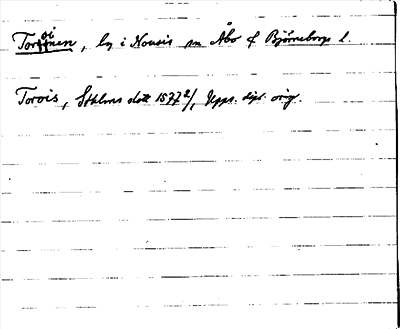 Toroinen, by i Nousis sn Åbo & Björneborgs l.
Torois, Sthlms slott 1577 2/, Upps. dipl. orig.